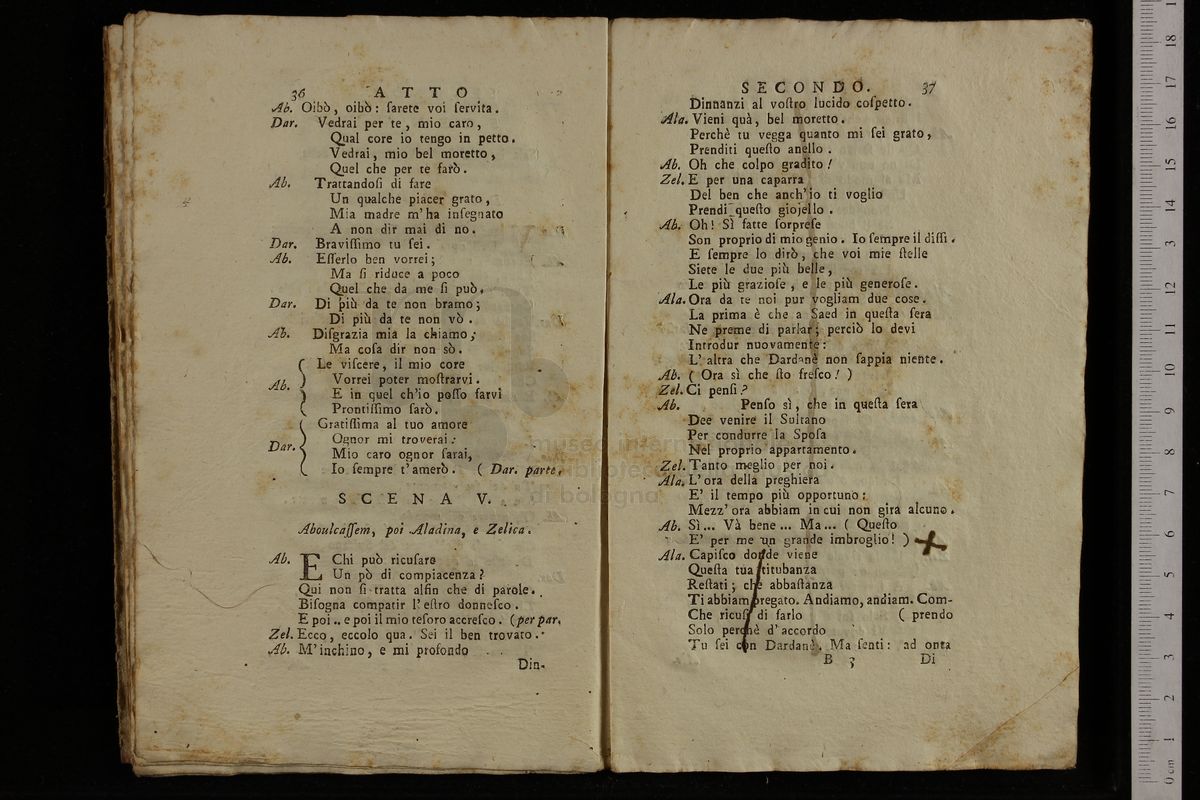 36 ATTO
Ab. Oibò, oibò: sarete voi servita.
Dar. Vedrai per te, mio caro,
Qual core io tengo in petto.
Vedrai, mio bel moretto,
Quel che per te farò.
Ab. Trattandoſi di fare
Un qualche piacer grato,
Mia madre m'ha inſegnato
A non dir mai di no.
Dar. Braviſſimo tu ſei.
Ab. Eſſerlo ben vorrei;
Ma ſi riduce a poco
Quel che da me ſi può.
Dar. Di più da te non bramo;
Di più da te non vò.
Ab. Diſgrazia mia la chiamo;
Ma coſa dir non sò.
Ab. { Le viſcere, il mio core
Vorrei poter moſtrarvi.
E in quel ch'io poſſo farvi
Prontiſſimo ſarò.
Dar. { Gratiſſima al tuo amore
Ognor mi troverai:
Mio caro ognor ſarai,
Io ſempre t'amerò. ( Dar. parte.
SCENA V.
Aboulcaſſem, poi Aladina, e Zelica.
Ab. E Chi può ricuſare
Un pò di compiacenza?
Qui non ſi tratta alfin che di parole.
Biſogna compatir l'eſtro donneſco.
E poi.. e poi il mio teſoro accreſco. (per par.
Zel. Ecco, eccolo qua. Sei il ben trovato.
Ab. M'inchino, e mi profondo
Din-
SECONDO. 37
Dinnanzi al voſtro lucido coſpetto.
Ala. Vieni quà, bel moretto.
Perchè tu vegga quanto mi ſei grato,
Prenditi queſto anello.
Ab. Oh che colpo gradito!
Zel. E per una caparra
Del ben che anch'io ti voglio
Prendi queſto giojello.
Ab. Oh! Sì fatte ſorpreſe
Son proprio di mio genio. Io ſempre il diſſi.
E ſempre lo dirò, che voi mie ſtelle
Siete le due più belle,
Le più grazioſe, e le più generoſe.
Ala. Ora da te noi pur vogliam due coſe.
La prima è che a Saed in queſta ſera
Ne preme di parlar; perciò lo devi
Introdur nuovamente:
L'altra che Dardanè non ſappia niente.
Ab. ( Ora sì che ſto freſco! )
Zel. Ci penſi?
Ab. Penſo sì, che in queſta ſera
Dee venire il Sultano
Per condurre la Spoſa
Nel proprio appartamento.
Zel. Tanto meglio per noi.
Ala. L'ora della preghiera
E' il tempo più opportuno:
Mezz'ora abbiam in cui non gira alcuno.
Ab. Sì... Và bene... Ma... ( Queſto
E' per me un grande imbroglio! )
Ala. Capiſco donde viene
Queſta tua titubanza
Reſtati; che abbaſtanza
Ti abbiam pregato. Andiamo, andiam. Com-
Che ricuſi di farlo ( prendo
Solo perchè d'accordo
Tu ſei con Dardanè. Ma ſenti: ad onta
B 3 Di
museo internazionale
biblioteca
di bologna
0 cm 1 2 3 4 5 6 7 8 9 10 11 12 13 14 15 16 17 18